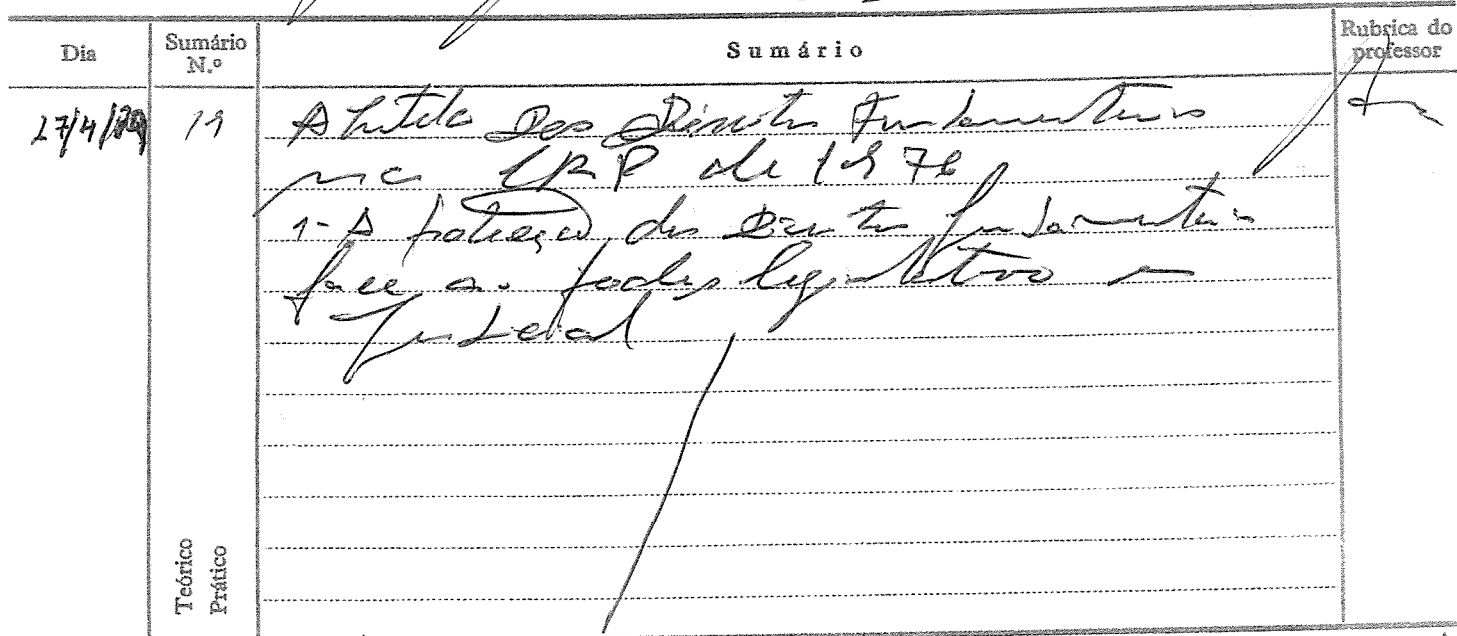 Dia Sumário N.º Sumário Rubrica do professor
27/4/89 19 A tutela dos Direitos Fundamentais
na CRP de 1976
1- A proteção dos Direitos fundamentais
face ao poder legislativo e
judicial
Teórico
Prático